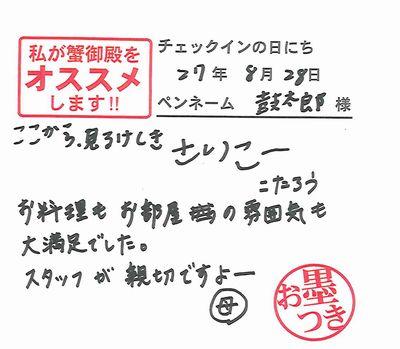 私が蟹御殿を
オススメ
します!!
チェックインの日にち
27年 8月 28日
ペンネーム 鼓太郎 様
ここから、見るけしき
さいこー
こたろう
お料理も お部屋の雰囲気も
大満足でした。
スタッフが 親切ですよー
母
お墨つき